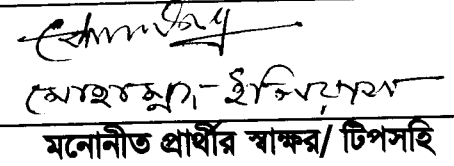 মোহাম্মদ ইলিয়াস
মনোনীত প্রার্থীর স্বাক্ষর/ টিপসহি